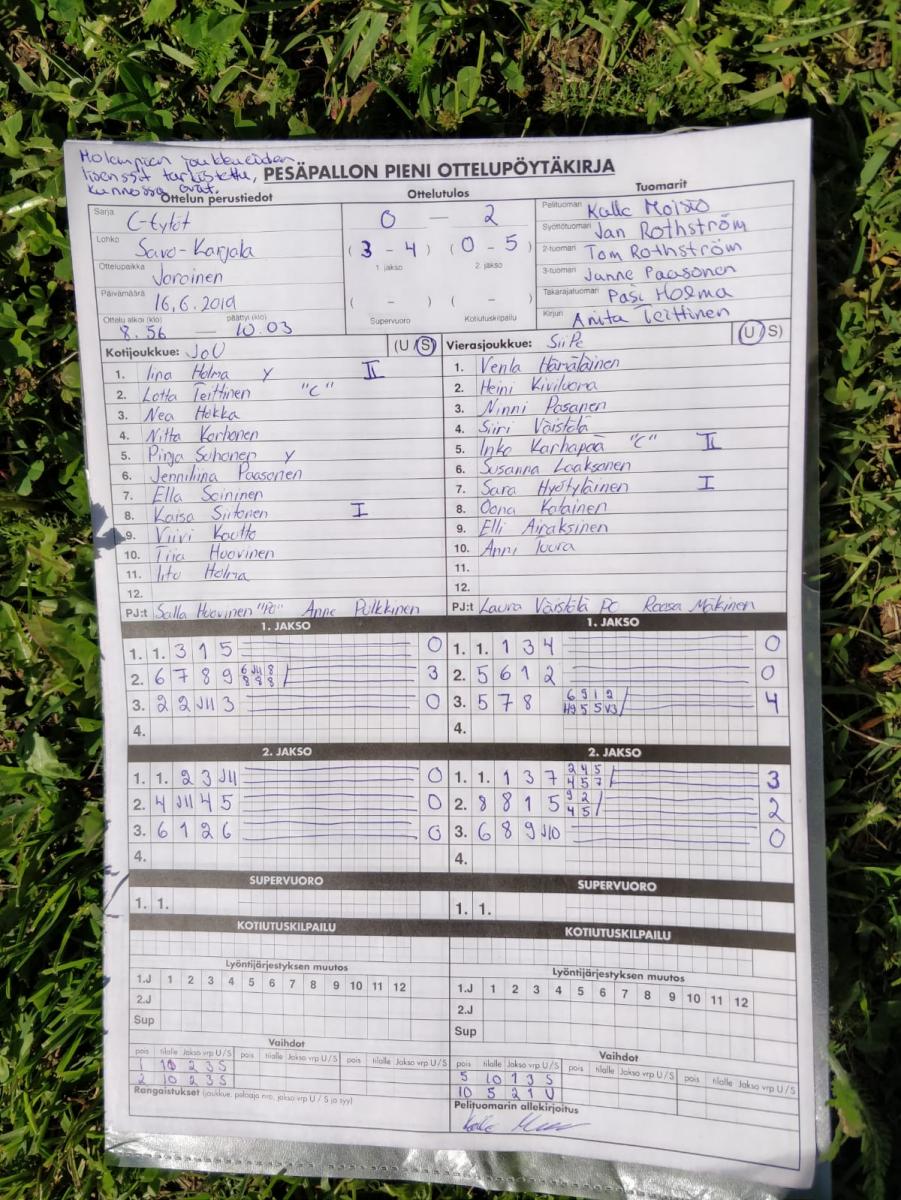 Molempien joukkueiden
lisenssit tarkistettu,
kunnossa ovat.
PESÄPALLON PIENI OTTELUPÖYTÄKIRJA
Ottelun perustiedot
Sarja C-tytöt
Lohko Savo-Karjala
Ottelupaikka Joroinen
Päivämäärä 16.6.2019
Ottelu alkoi (klo) päättyi (klo)
8.56 — 10.03
Ottelutulos
0 — 2
(3 - 4) (0 - 5)
1. jakso 2. jakso
( - ) ( - )
Supervuoro Kotiutuskilpailu
Tuomarit
Pelituomari Kalle Moisio
Syöttötuomari Jan Rothström
2-tuomari Tom Rothström
3-tuomari Janne Paasonen
Takarajatuomari Pasi Holma
Kirjuri Anita Teittinen
Kotijoukkue: JoU (U / S)
1. Iina Holma Y II
2. Lotta Teittinen "C"
3. Nea Hokka
4. Nitta Korhonen
5. Pinja Suhonen Y
6. Jenniliina Paasonen
7. Ella Soininen
8. Kaisa Siitonen I
9. Viivi Kautto
10. Tiia Huovinen
11. Iitu Holma
12.
PJ:t Salla Huovinen "PC" Anne Pulkkinen
Vierasjoukkue: SiiPe (U / S)
1. Venla Hämäläinen
2. Heini Kiviluoma
3. Ninni Pasanen
4. Siiri Väistölä
5. Inka Karhapää "C" II
6. Susanna Laaksonen
7. Sara Hyötyläinen I
8. Oona Kalainen
9. Elli Airaksinen
10. Anni Tuura
11.
12.
PJ:t Laura Väistölä PC Roosa Mäkinen
1. JAKSO
1. 1. 3 1 5 0
2. 6 7 8 9 3
3. 2 2 J11 3 0
4.
1. JAKSO
1. 1. 1 3 4 0
2. 5 6 1 2 0
3. 5 7 8 4
4.
2. JAKSO
1. 1. 2 3 J11 0
2. 4 J11 4 5 0
3. 6 1 2 6 0
4.
2. JAKSO
1. 1. 1 3 7 2 4 5 / 4 5 7 3
2. 8 8 1 5 9 2 / 4 5 2
3. 6 8 9 J10 0
4.
SUPERVUORO
1. 1.
SUPERVUORO
1. 1.
KOTIUTUSKILPAILU
KOTIUTUSKILPAILU
Lyöntijärjestyksen muutos
1.J 1 2 3 4 5 6 7 8 9 10 11 12
2.J
Sup
Lyöntijärjestyksen muutos
1.J 1 2 3 4 5 6 7 8 9 10 11 12
2.J
Sup
Vaihdot
pois tilalle Jakso vrp U / S pois tilalle Jakso vrp U / S pois tilalle Jakso vrp U / S
1 10 2 3 S
2 10 2 3 S
Rangaistukset (joukkue, pelaaja nro, jakso vrp U / S ja syy)
Vaihdot
pois tilalle Jakso vrp U / S pois tilalle Jakso vrp U / S pois tilalle Jakso vrp U / S
5 10 1 3 S
10 5 2 1 U
Pelituomarin allekirjoitus